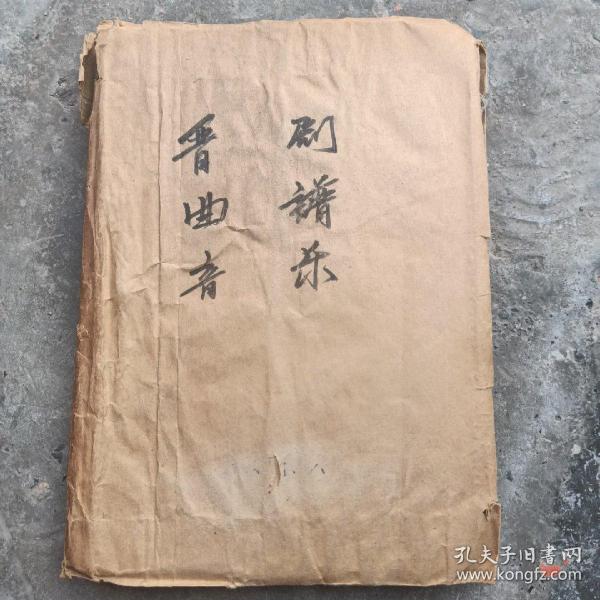 晋剧
曲譜
音乐
孔夫子旧書网
www.kongfz.com